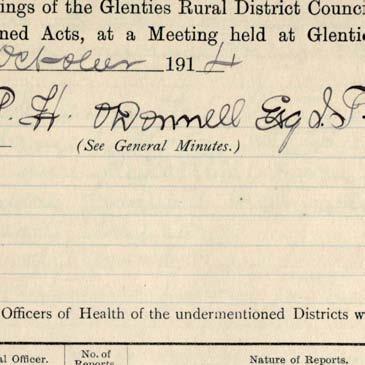 ings of the Glenties Rural District Counci
ned Acts, at a Meeting held at Glentie
October 1914
P. H. O'Donnell Esq J. P.
(See General Minutes.)
Officers of Health of the undermentioned Districts w
al Officer.
No. of
Reports.
Nature of Reports.